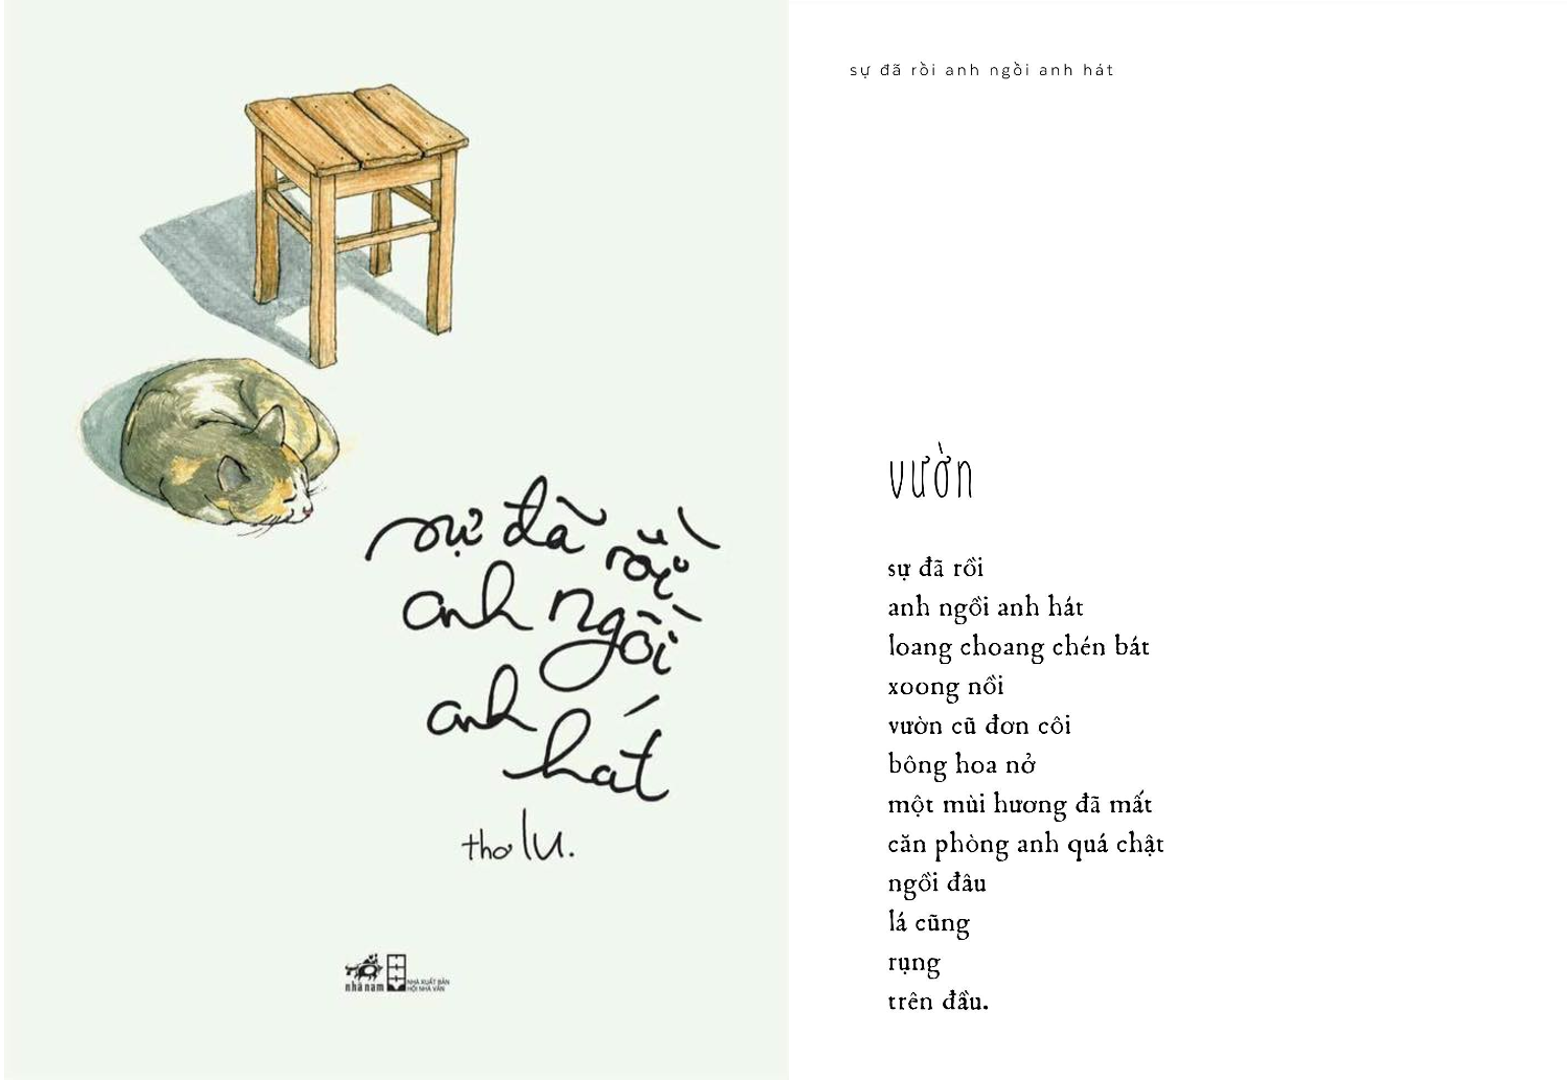 sự đã rồi
anh ngồi
anh
hát
thơ lu.
nhã nam
NHÀ XUẤT BẢN
HỘI NHÀ VĂN
sự đã rồi anh ngồi anh hát
vườn
sự đã rồi
anh ngồi anh hát
loang choang chén bát
xoong nồi
vườn cũ đơn côi
bông hoa nở
một mùi hương đã mất
căn phòng anh quá chật
ngồi đâu
lá cũng
rụng
trên đầu.